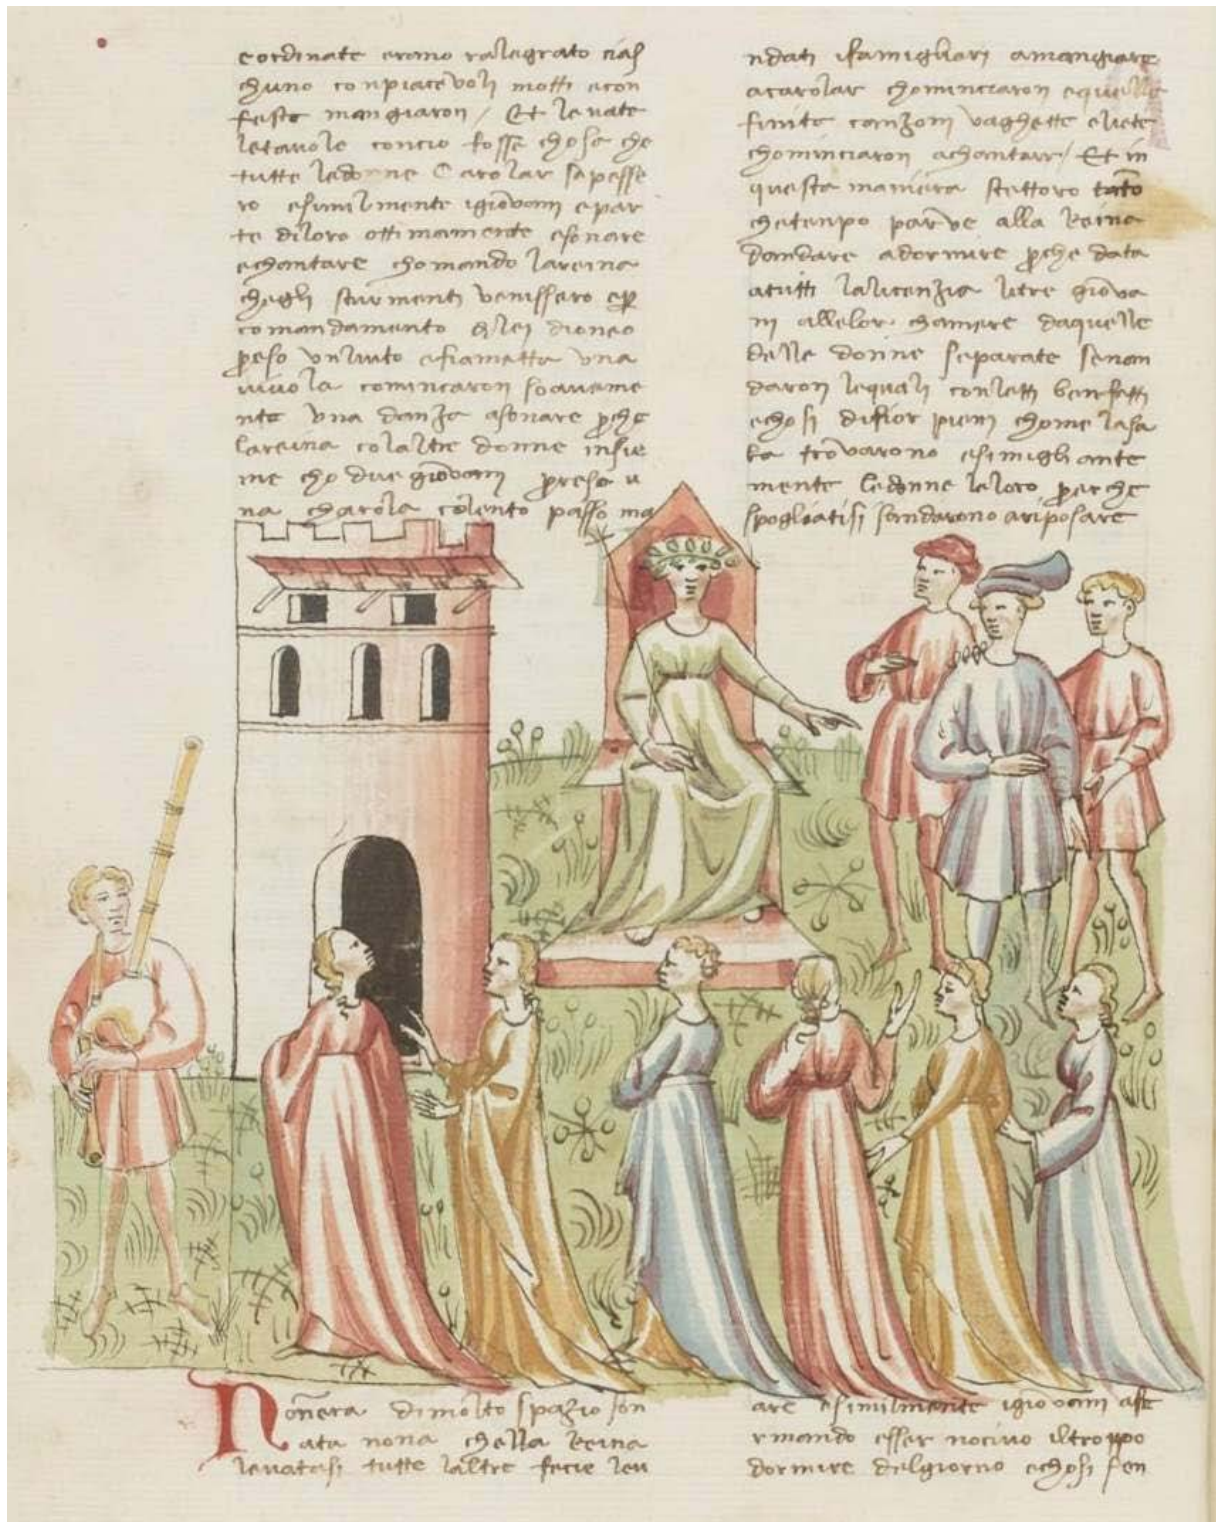 eordinate erano ralegrato cias
chuno conpiacevoli motti econ
festa mangiaron / Et levate
letavole concio fosse chosa che
tutte ledonne Carolar sapesse
ro esimilmente igiovani epar
te diloro ottimamente esonare
echantare chomando lareina
chegli sturmenti venissero e p
comandamento di lei dioneo
preso unliuto efiametta una
vivola comincaron soaveme
nte una danza asonare pche
lareina colaltre donne insie
me cho due giovani presa u
na charola cōlento passo ma
ndati ifamigliari amangiare
acarolar chominciaron equella
finita canzoni vaghette eliete
chominciaron achantare / Et in
questa maniera stettoro tāto
chetenpo parve alla Reina
dandare adormire pche data
atutti lalicenzia litre giova
ni allelor chamere daquelle
delle donne separate senan
daron lequali conletti benfatti
echosi difior pieni chome lasa
la trovarono esimigliante
mente ledonne leloro perche
spogliatisi sandarono ariposare
Noñera dimolto spazio son
ata nona chella Reina
levatasi tutte laltre fecie lev
are esimilmente igiovani afe
rmando esser nocivo iltroppo
dormire delgiorno echosi sen